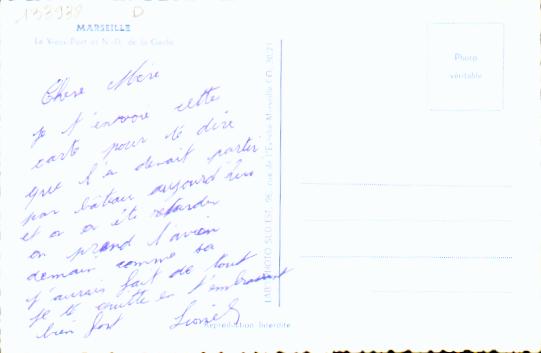 133938 D
MARSEILLE
Le Vieux-Port et N.-D. de la Garde
Photo
véritable
Chère Mère
je t'envoie cette
carte pour te dire
que l'on devait partir
par bâteau aujourd'hui
et on a été retarder
on prend l'avion
demain comme sa
j'aurais fait de tout
je te quitte en t'embrassant
bien fort Lionel
Reproduction Interdite